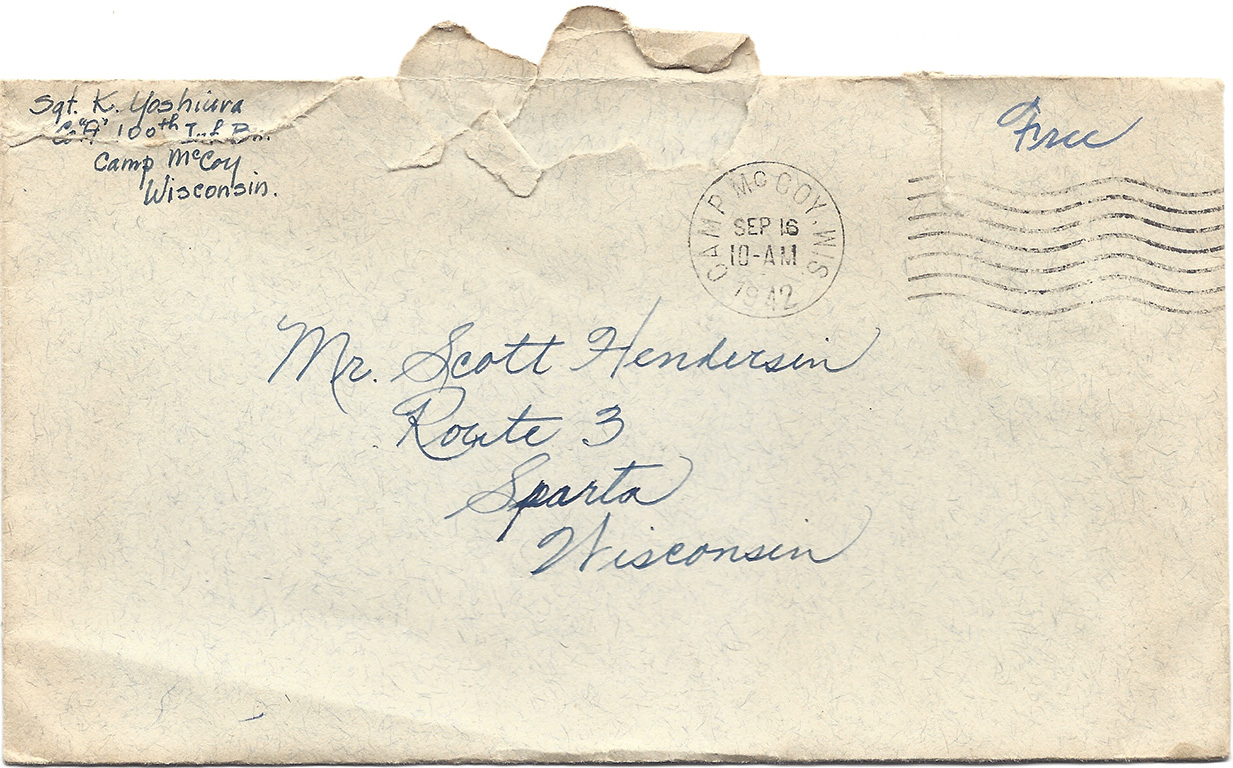 Sgt. K. Yoshiura
"A" 100th Inf. Bn.
Camp McCoy
Wisconsin.
Free
CAMP McCOY. WIS
SEP 16
10-AM
1942
Mr. Scott Hendersin
Route 3
Sparta
Wisconsin